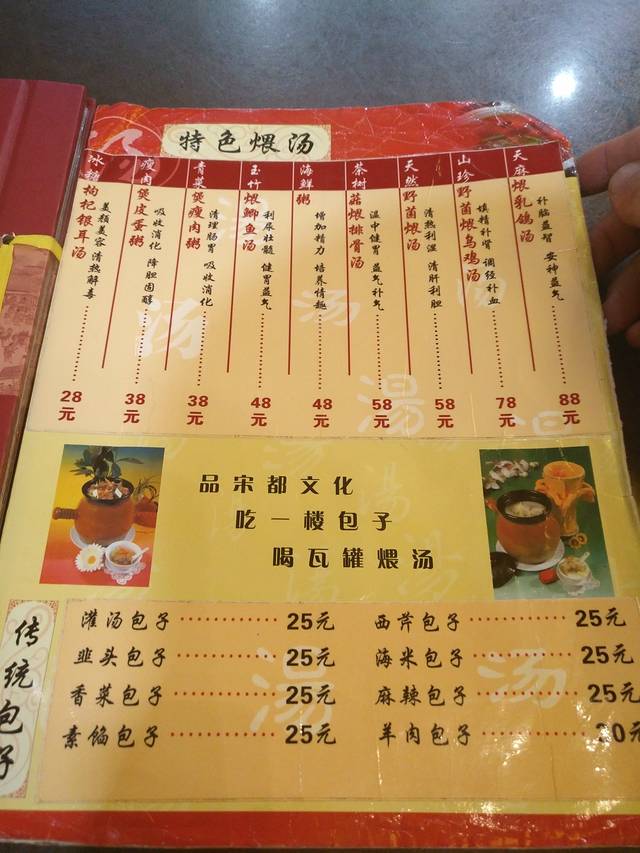 特色煨汤
冰糖枸杞银耳汤
美颜美容 清热解毒
28元
瘦肉煲皮蛋粥
吸收消化 降胆固醇
38元
青菜煲瘦肉粥
清理肠胃 吸收消化
38元
玉竹煨鲫鱼汤
利尿壮髓 健胃益气
48元
海鲜粥
增加精力 培养情趣
48元
茶树菇煨排骨汤
温中健胃 益气补气
58元
天然野菌煨汤
清热利湿 清肝利胆
58元
山珍野菌煨乌鸡汤
填精补骨 调经补血
78元
天麻煨乳鸽汤
补脑益智 安神益气
88元
汤
汤
湯
品宋都文化
吃一楼包子
喝瓦罐煨汤
传统包子
灌汤包子 25元
韭头包子 25元
香菜包子 25元
素馅包子 25元
西芹包子 25元
海米包子 25元
麻辣包子 25元
羊肉包子 30元
湯
汤